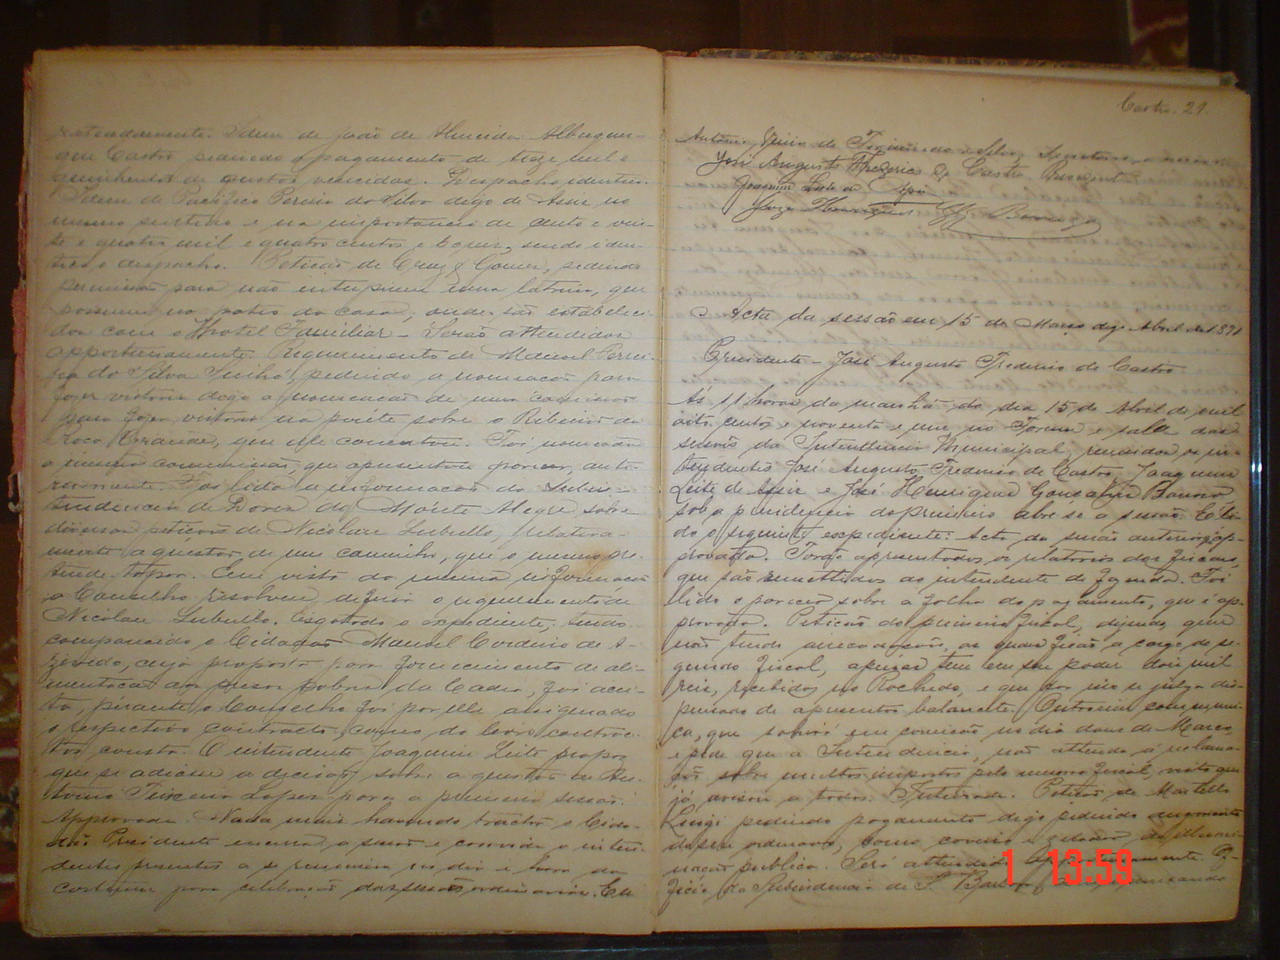 rateadamente. Idem de João de Almeida Albuquer-
que Castro pedindo o pagamento de treze mil e
quinhentos de custas vencidas. Despacho identico.
Idem de Pacifico Pereira da Silva digo de Assis no
mesmo sentido e na importancia de cento e vin-
te e quatro mil e quatro centos e reis, sendo iden-
tico o despacho. Petição de Cruz & Gomes, pedindo
permissão para não entupirem uma latrina, que
possuem no pateo da casa, onde são estabeleci-
dos com o Hotel Familiar - Serão attendidos
opportunamente. Requerimento de Manoel Ferrei-
ra da Silva pedindo a nomeação para
fazer vistoria digo a nomeação de uma comissão
para fazer vistoria na ponte sobre o Ribeirão da
que elle concertou. Foi nomeada
a mesma commissão, que apresentou parecer, ante-
riormente. Foi lida a informação da Subin-
tendencia de Dores do Monte Alegre sobre
diversas petições de Nicolau relativa-
mente a questão de um caminho, que o mesmo pre-
tende tapar. Em vista da mesma informação
o Conselho resolveu deferir o requerimento de
Nicolau Esgotado o expediente, tendo
comparecido o Cidadão Manoel Cordeiro de A-
zevedo, cuja proposta para fornecimento de ali-
mentação aos presos pobres da Cadea, foi acei-
ta, perante o Conselho foi por elle assignado
o respectivo contracto, como do livro contrac-
tos consta. O intendente Joaquim Leite propoz
que se adiasse a decisão sobre a questão de An-
tonio Teixeira Lopes para a primeira sessão.
Approvada. Nada mais havendo tractar o Cida-
dão Presidente encerra a sessão e convida os inten-
dentes presentes a se reunirem no dia e hora do
costume para celebração das sessões ordinarias. Eu
Castro. 29.
Antonio de Figueiredo e Silva, Secretario, o escrevi
José Augusto Frederico de Castro Presidente
Joaquim Leite de Assis
José Henriques Barros
Acta da sessão em 15 de Março digo Abril de 1891
Presidente - José Augusto Frederico de Castro
Ás 11 horas da manhã do dia 15 de Abril de mil
oito centos e noventa e um no Forum e sala das
sessões da Intendencia Municipal, reunidos os in-
tendentes José Augusto Frederico de Castro, Joaquim
Leite de Assis e José Henriques Barros
sob a presidencia do primeiro abre-se a sessão. É li-
do o seguinte expediente: Acta da sessão anterior, ap-
provada. Forão apresentados os relatorios dos fiscaes,
que são remettidos ao intendente de fazenda. Foi
lido o parecer sobre a folha de pagamento, que é ap-
provado. Petição do primeiro fiscal, dizendo que
não tendo arrecadações, as quaes ficão a cargo do se-
gundo fiscal, apenas tem em seu poder dois mil
reis, recebidos no Rochedo, e que por isso se julga dis-
pensado de apresentar balancete. Outrosim communi-
ca, que sahirá em comissão no dia dous de Março
e pede que a Intendencia, não attenda á reclama-
ção sobre multas impostas pelo mesmo fiscal, visto que
já avisou a todos. Inteirada. Petição de Martello
Luigi pedindo pagamento digo pedindo augmento
de seu ordenado, como coveiro e zelador da illumi-
nação publica. Será attendido opportunamente. Of-
ficio da Subintendencia de S.
1 13:59